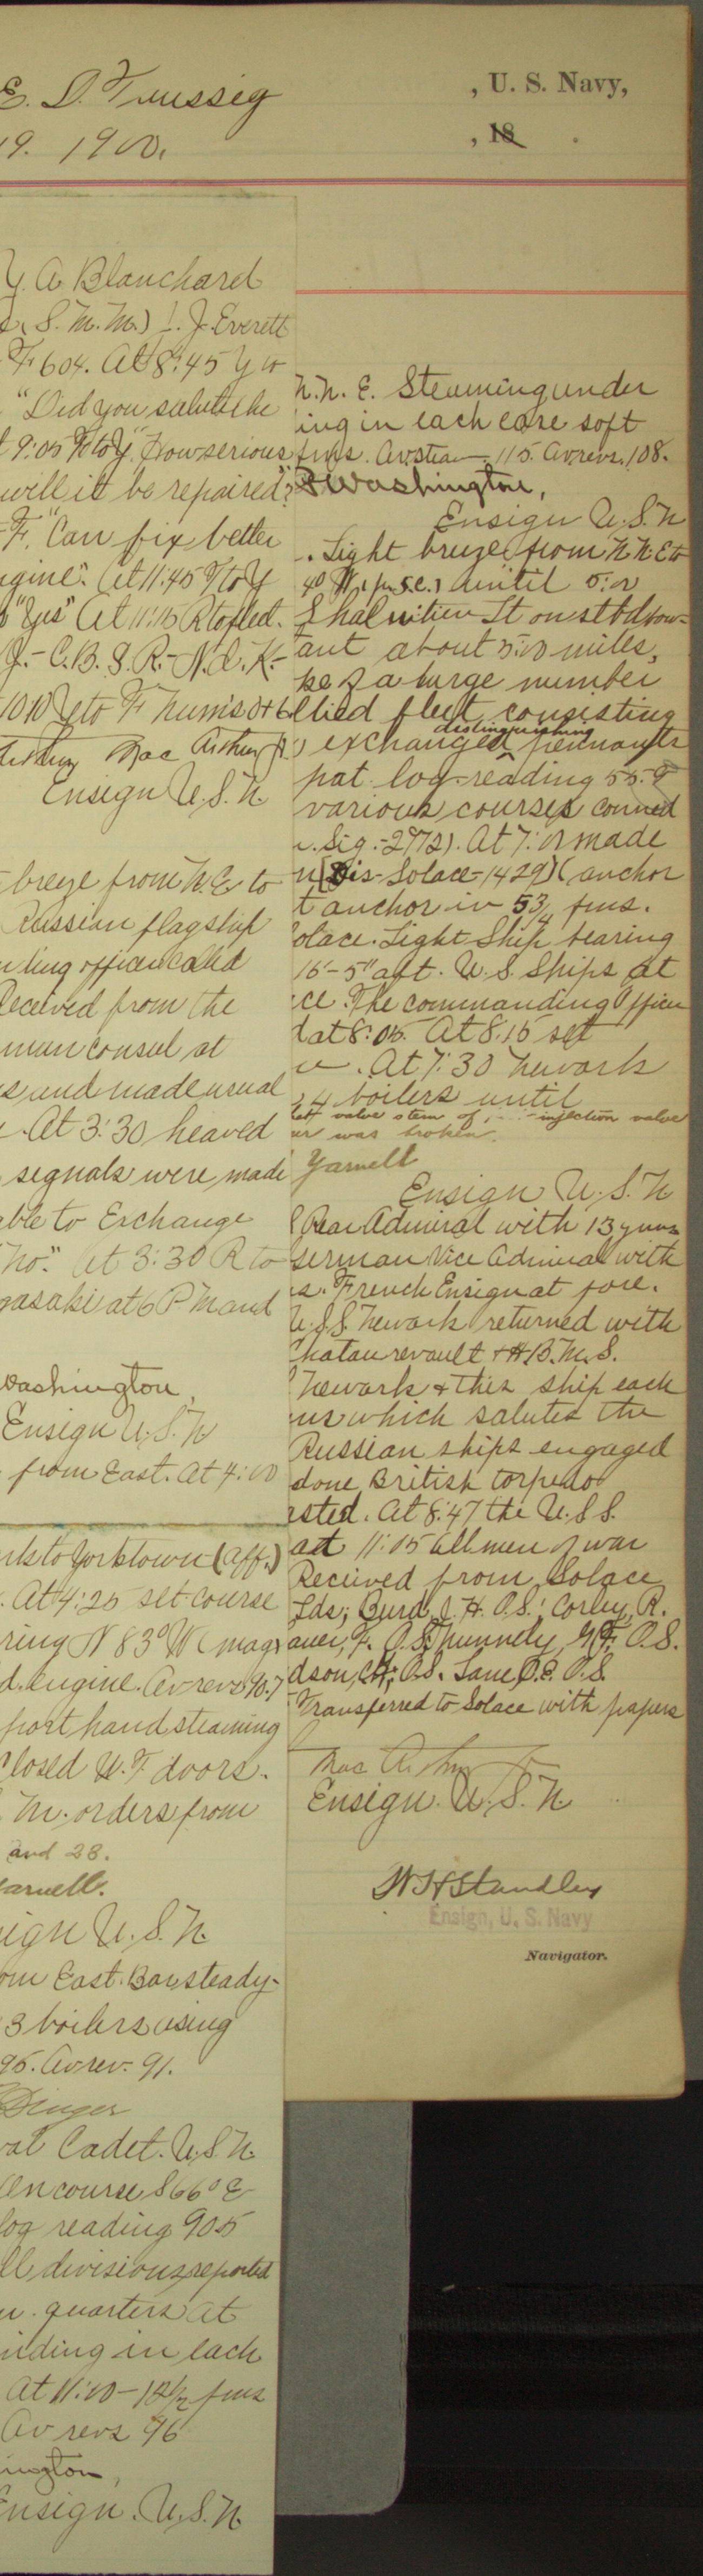 E. D. Taussig
, U. S. Navy,
19. 1900.
, 18 .
Y. A Blanchard
(S. M. M.) J. Everett
F 604. At 8:45 Y to
"Did you salute the
9:05 F to Y "How serious
will it be repaired?"
F. "Can fix better
engine". At 11:45 F to Y
"Yes" At 11:15 R to fleet.
J.- C. B. S. R.- N. d. K.-
1010 Y to F
Mac Arthur Jr
Ensign U. S. N.
breeze from N. E. to
Russian flagship
officer called
Received from the
consul at
and made usual
At 3:30 heaved
signals were made
able to Exchange
"No." At 3:30 R to
Nagasaki at 6 P M and
Washington,
Ensign U. S. N
from East. At 4:00
to Yorktown (aff.)
. At 4:25 set course
ring N 83° W (mag)
engine. Av revs 90.7
port hand steaming
Closed W. T doors.
M. orders from
and 28.
Yarnell.
Ensign U. S. N.
from East. Bar steady-
3 boilers using
95. Av rev. 91.
Dinger
Naval Cadet. U. S. N.
on course S 66° E
log reading 90.5
all divisions reported
quarters at
in each
At 11:00 - 18½ fms
Av revs 96
Washington,
Ensign. U. S. N.
N. N. E. Steaming under
ing in each case soft
fms. Av. steam 115. Av. revs. 108.
Washington,
Ensign U. S. N
. Light breeze from N N. E to
40 W. (p. s. c.) until 5:00
on stbd bow-
distant about 5:00 miles,
smoke of a large number
allied fleet, consisting
exchanged distinguishing pennants
pat. log reading 55.9
various courses conned
Sig.- 2972). At 7:00 made
[Dis- Solace- 1429] (anchor
at anchor in 5¾ fms.
Solace. Light Ship bearing
16'-5" aft. U. S. Ships at
The commanding Officer
at 8:05. At 8.15 set
. At 7:30 Newark
4 boilers until
valve stem of injection valve
was broken.
Yarnell
Ensign U. S. N
Rear Admiral with 13 guns
German Vice Admiral with
French Ensign at fore.
U. S. S Newark returned with
Chateaurenault & H. B. M. S.
Newark & this ship each
which salutes the
Russian ships engaged
done, British torpedo
. At 8:47 the U. S S.
at 11:05 all men of war
Received from Solace
Lds; Burd, J. H. O. S.; Corley, R.
F. O. S; Nunnely, G. F. O. S.
O. S. Lane, O. E. O. S.
Transferred to Solace with papers
Mac Arthur Jr
Ensign. U. S. N.
W H Standley
Ensign, U. S. Navy
Navigator.